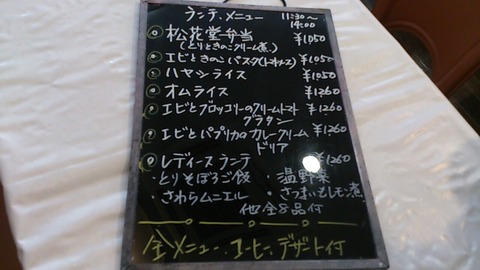 ランチ、メニュー 11:30〜
14:00
松花堂弁当 ¥1050
(とりときのこクリーム煮)
エビときのこパスタ(トマトソース) ¥1050
ハヤシライス ¥1050
オムライス ¥1260
エビとブロッコリーのクリームトマト ¥1260
グラタン
エビとパプリカのカレークリーム ¥1260
ドリア
レディース ランチ ¥1260
・とりそぼろご飯 ・温野菜
・さわらムニエル ・さつまいもレモン煮
他全8品付
全メニュー、コーヒー、デザート付